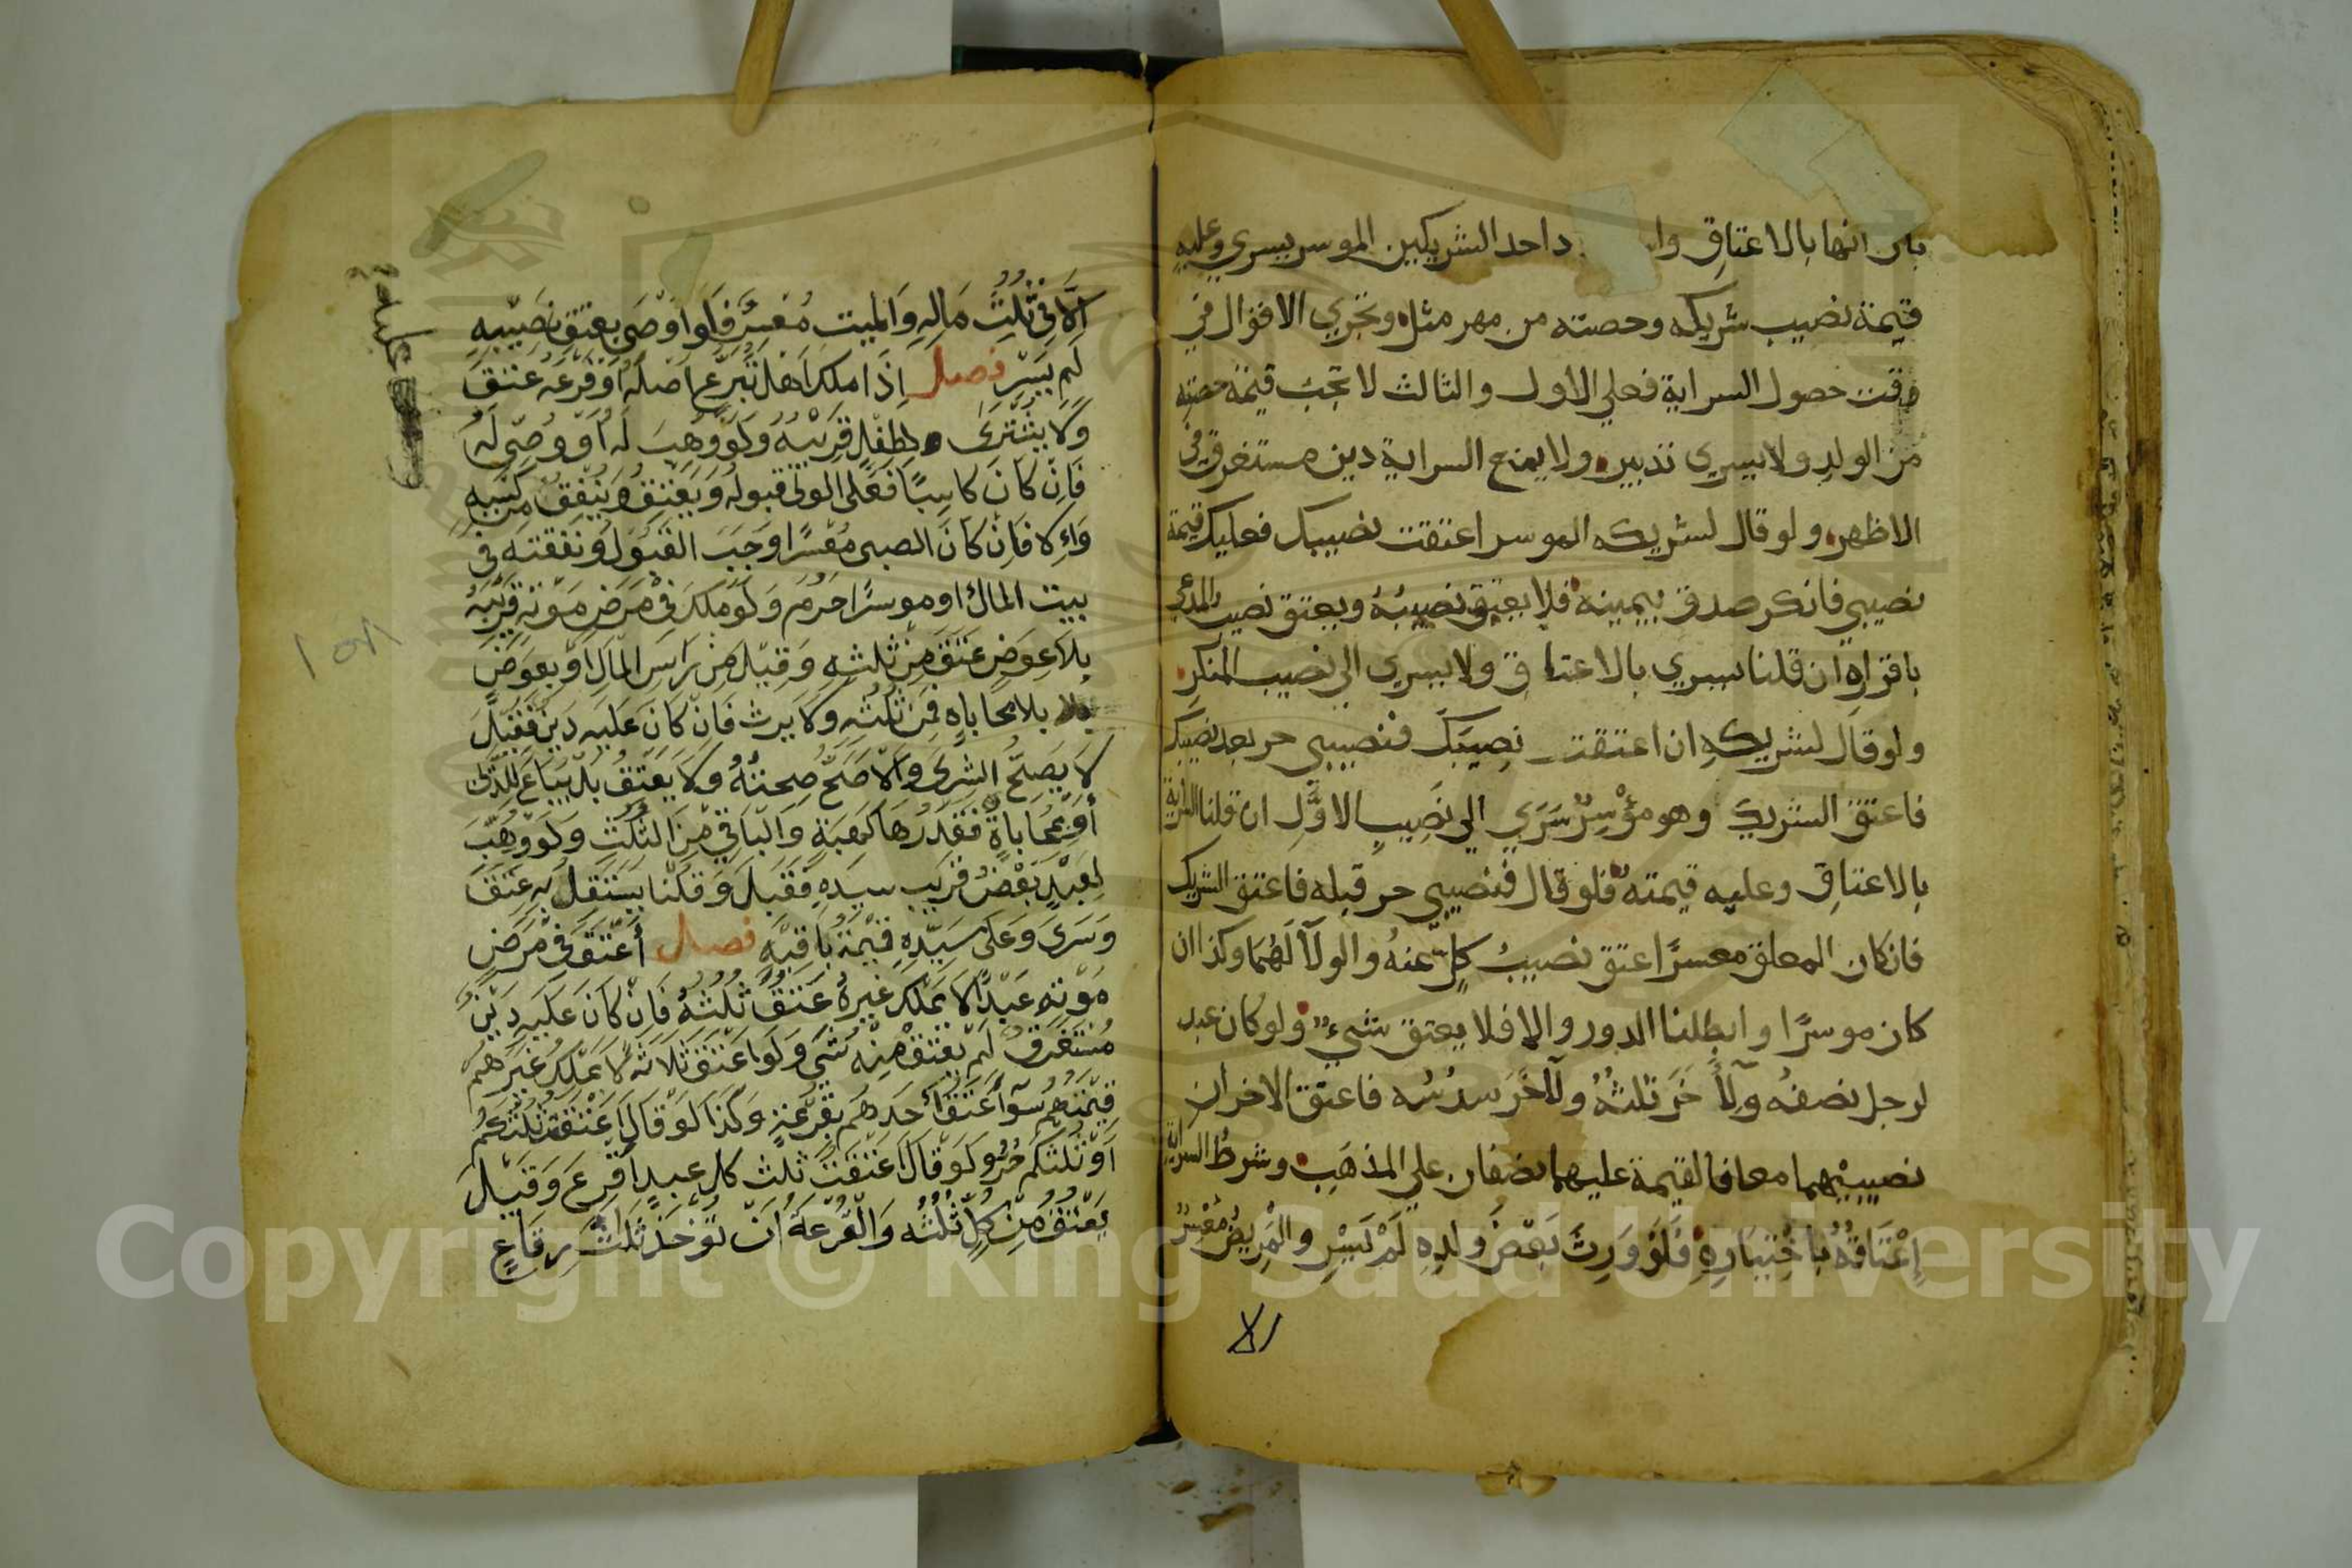 بان انها بالاعتاق واس د احد الشريكين الموسر يسري وعليه
قيمة نصيب شريكه وحصته من مهر مثله وتجري الاقوال في
وقت حصول السراية فعلي الاول والثالث لا تجب قيمة حصته
من الولد ولا يسري تدبير ولا يمنع السراية دين مستغرق في
الاظهر ولو قال لشريكه الموسر اعتقت نصيبك فعليك قيمة
نصيبي فانكر صدق بيمينه فلا يعتق نصيبه ويعتق نصيب المدعي
باقراره ان قلنا يسري بالاعتاق ولا يسري الي نصيب المنكر
ولو قال لشريكه ان اعتقت نصيبك فنصيبي حر بعد نصيبك
فاعتق الشريك وهو مؤسر سري الي نصيب الاول ان قلنا السراية
بالاعتاق وعليه قيمته فلو قال فنصيبي حر قبله فاعتق الشريك
فان كان المعلق معسرا عتق نصيب كل عنه والولآ لهما وكذا ان
كان موسرا وابطلنا الدور والا فلا يعتق شيء ولو كان عبد
لرجل نصفه ولآخر ثلثه ولآخر سدسه فاعتق الاخران
نصيبيهما معا فالقيمة عليهما نصفان علي المذهب وشرط السراية
اعتاقه باختياره فلو ورث بعض ولده لم يسر والمريض معسر
الا
الا في ثلث ماله والميت معسر فلو اوصى بعتق نصيبه
لم يسر فصل اذا ملك اهل تبرع اصله او فرعه عتق
ولا يشترى لطفل قريبه ولو وهب له او وصي له
فان كان كاسبا فعلى الولى قبوله ويعتق وينفق من كسبه
وإلا فان كان الصبى معسرا وجب القبول ونفقته في
بيت المال او موسرا حرم ولو ملك في مرض موته قريبه
بلا عوض عتق من ثلثه وقيل من راس المال او بعوض
بلا بلا محاباه فمن ثلثه ولا يرث فان كان عليه دين فقيل
لا يصح الشرى والاصح صحته ولا يعتق بل يباع للدين
أو بمحاباة فقدرها كهبة والباقي من الثلث ولو وهب
لعبد بعض قريب سيده فقبل وقلنا يستقل به عتق
وسرى وعلى سيده قيمة باقيه فصل أعتق في مرض
موته عبدا لا يملك غيره عتق ثلثه فان كان عليه دين
مستغرق لم يعتق منه شي ولو اعتق ثلاثه لا يملك غيرهم
قيمتهم سوآ عتق أحدهم بقرعة وكذا لو قال اعتقت ثلثكم
او ثلثكم حر ولو قال اعتقت ثلث كل عبد أقرع وقيل
يعتق من كل ثلثه والقرعة ان تؤخذ ثلث رقاع
Copyright © King Saud University